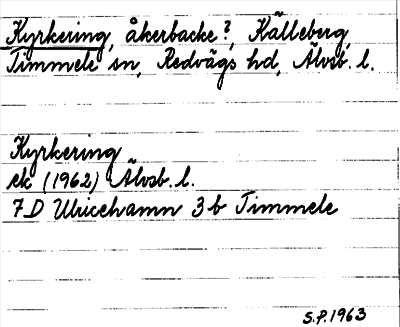 Kyrkering, åkerbacke?, Källeberg,
Timmele sn, Redvägs hd, Älvsb. l.
Kyrkering
ek (1962) Älvsb. l.
7D Ulricehamn 3b Timmele
S.P. 1963